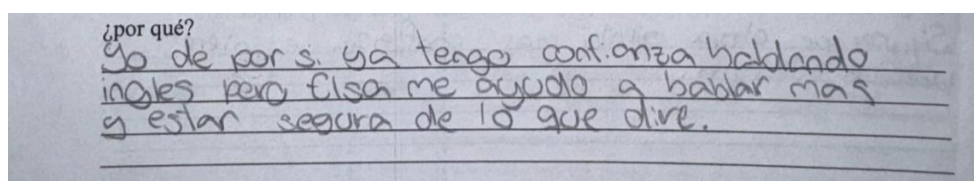 ¿por qué?
Yo de por si ya tengo confianza hablando
ingles pero Elsa me ayudo a hablar mas
y estar segura de lo que dire.